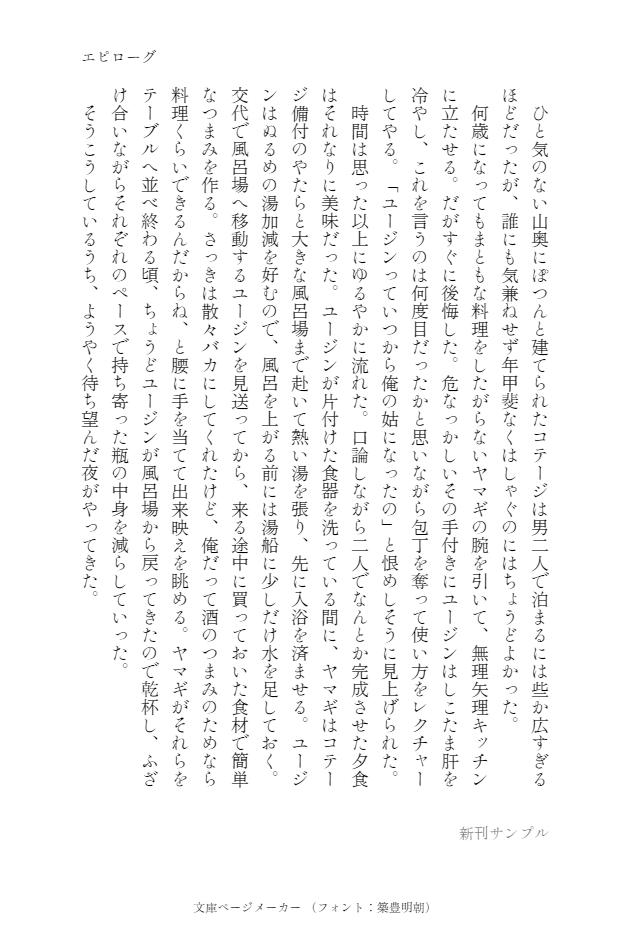 エピローグ
　ひと気のない山奥にぽつんと建てられたコテージは男二人で泊まるには些か広すぎる
ほどだったが、誰にも気兼ねせず年甲斐なくはしゃぐのにはちょうどよかった。
　何歳になってもまともな料理をしたがらないヤマギの腕を引いて、無理矢理キッチン
に立たせる。だがすぐに後悔した。危なっかしいその手付きにユージンはしこたま肝を
冷やし、これを言うのは何度目だったかと思いながら包丁を奪って使い方をレクチャー
してやる。「ユージンっていつから俺の姑になったの」と恨めしそうに見上げられた。
　時間は思った以上にゆるやかに流れた。口論しながら二人でなんとか完成させた夕食
はそれなりに美味だった。ユージンが片付けた食器を洗っている間に、ヤマギはコテー
ジ備付のやたらと大きな風呂場まで赴いて熱い湯を張り、先に入浴を済ませる。ユージ
ンはぬるめの湯加減を好むので、風呂を上がる前には湯船に少しだけ水を足しておく。
交代で風呂場へ移動するユージンを見送ってから、来る途中に買っておいた食材で簡単
なつまみを作る。さっきは散々バカにしてくれたけど、俺だって酒のつまみのためなら
料理くらいできるんだからね、と腰に手を当てて出来映えを眺める。ヤマギがそれらを
テーブルへ並べ終わる頃、ちょうどユージンが風呂場から戻ってきたので乾杯し、ふざ
け合いながらそれぞれのペースで持ち寄った瓶の中身を減らしていった。
　そうこうしているうち、ようやく待ち望んだ夜がやってきた。
新刊サンプル
文庫ページメーカー（フォント：築豊明朝）